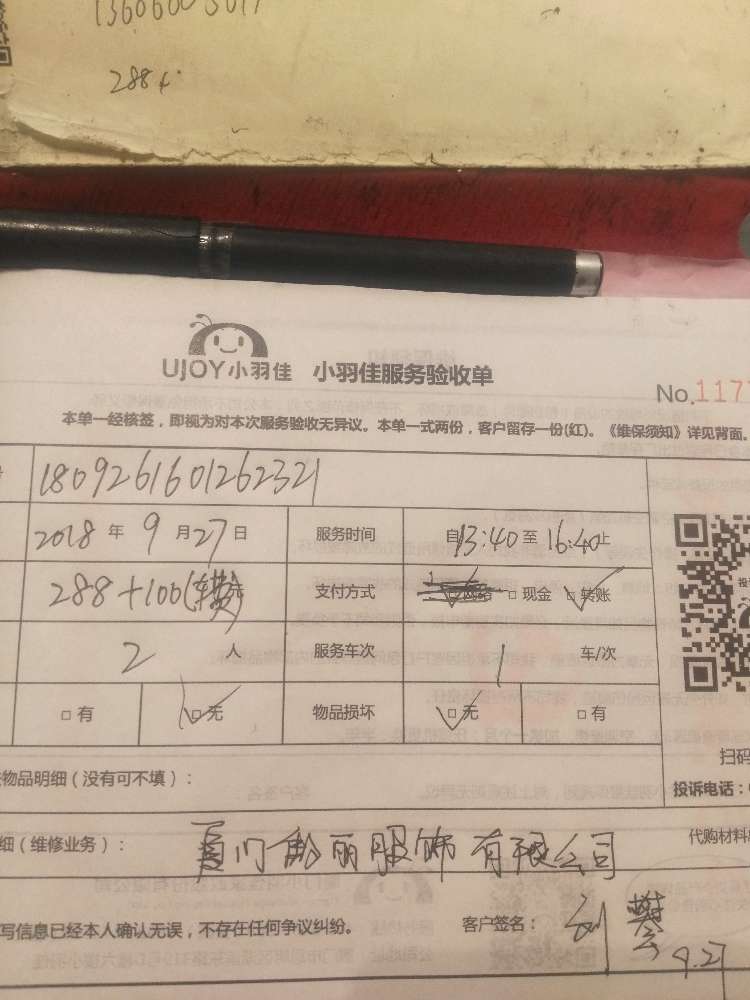 288
UJOY小羽佳 小羽佳服务验收单
No.117
本单一经核签，即视为对本次服务验收无异议。本单一式两份，客户留存一份(红)。《维保须知》详见背面。
1809261601262321
2018年9月27日 服务时间 自13:40至16:40止
288+100 支付方式 □网络 □现金 □转账
2人 服务车次 1 车/次
□有 □无 物品损坏 □无 □有
扫码
物品明细（没有可不填）：
投诉电话：
细（维修业务）：
代购材料
厦门 丽服饰有限公司
写信息已经本人确认无误，不存在任何争议纠纷。 客户签名： 刘 9.27